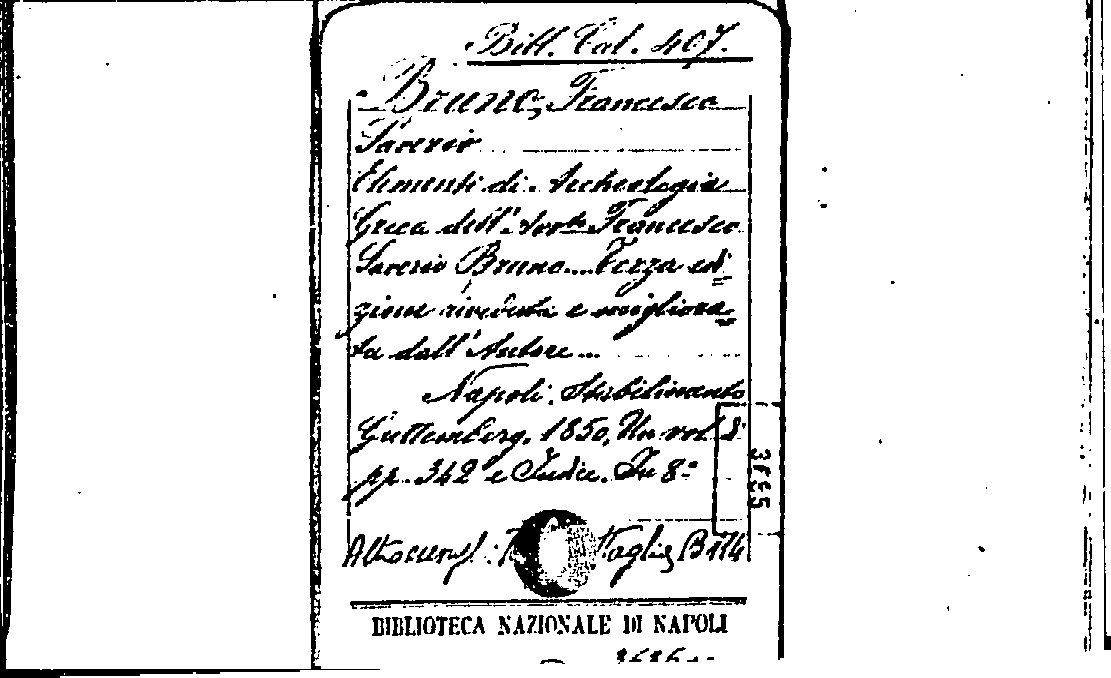 Bibl. Cal. 407.
Bruno, Francesco
Saverio
Elementi di Archeologia
Greca dell'Avv.to Francesco
Saverio Bruno... Terza edi=
zione riveduta e migliora=
ta dall'Autore...
Napoli. Stabilimento
Guttemberg. 1850, Un vol. 8°
pp. 342 e Indice. In 8°
BIBLIOTECA NAZIONALE DI NAPOLI